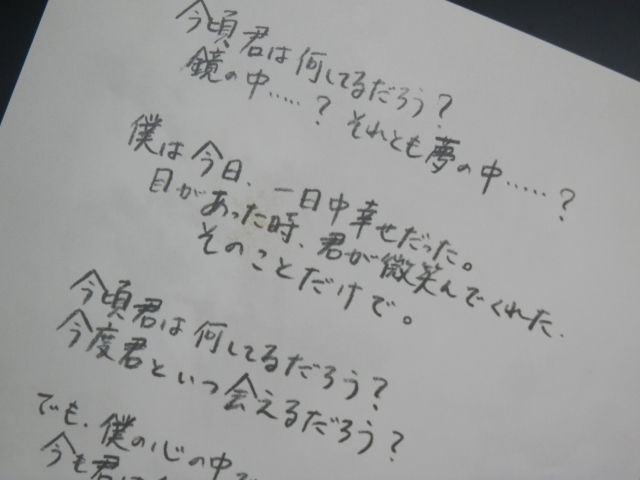 今頃君は何してるだろう?
鏡の中……? それとも夢の中……?
僕は今日、一日中幸せだった。
目があった時、君が微笑んでくれた、
そのことだけで。
今頃君は何してるだろう?
今度君といつ会えるだろう?
でも、僕の心の中
今も君は